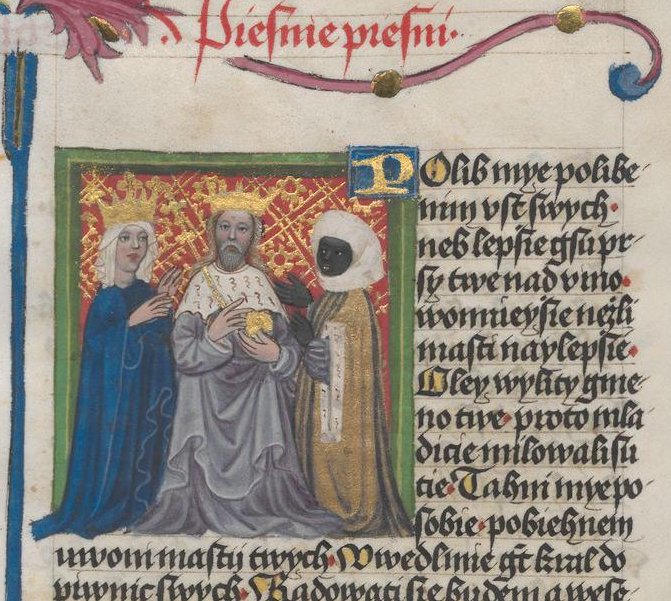 Piesnie piesni·
POlib mye polibe-
nim vst swych·
neb lepsie gsu pr-
sy twe nad vino·
wonnieysie nezli
masti naylepsie·
Oley wylity gme-
no twe· proto mla
dicie milowali su
tie· Tahni mye po
sobie· pobiehnem
u woni masty twych· Uwedl mie gt kral do
piwnic swych· Radowati sie budem a wese-